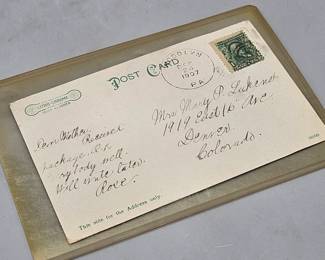 POST CARD
1907
PA.
Dear Mother,
Received
package O.K.
Will write later.
Rose.
Mrs Mary P. Lukens
1919 East 16 Ave.
Denver
Colorado.
This side for the Address only.